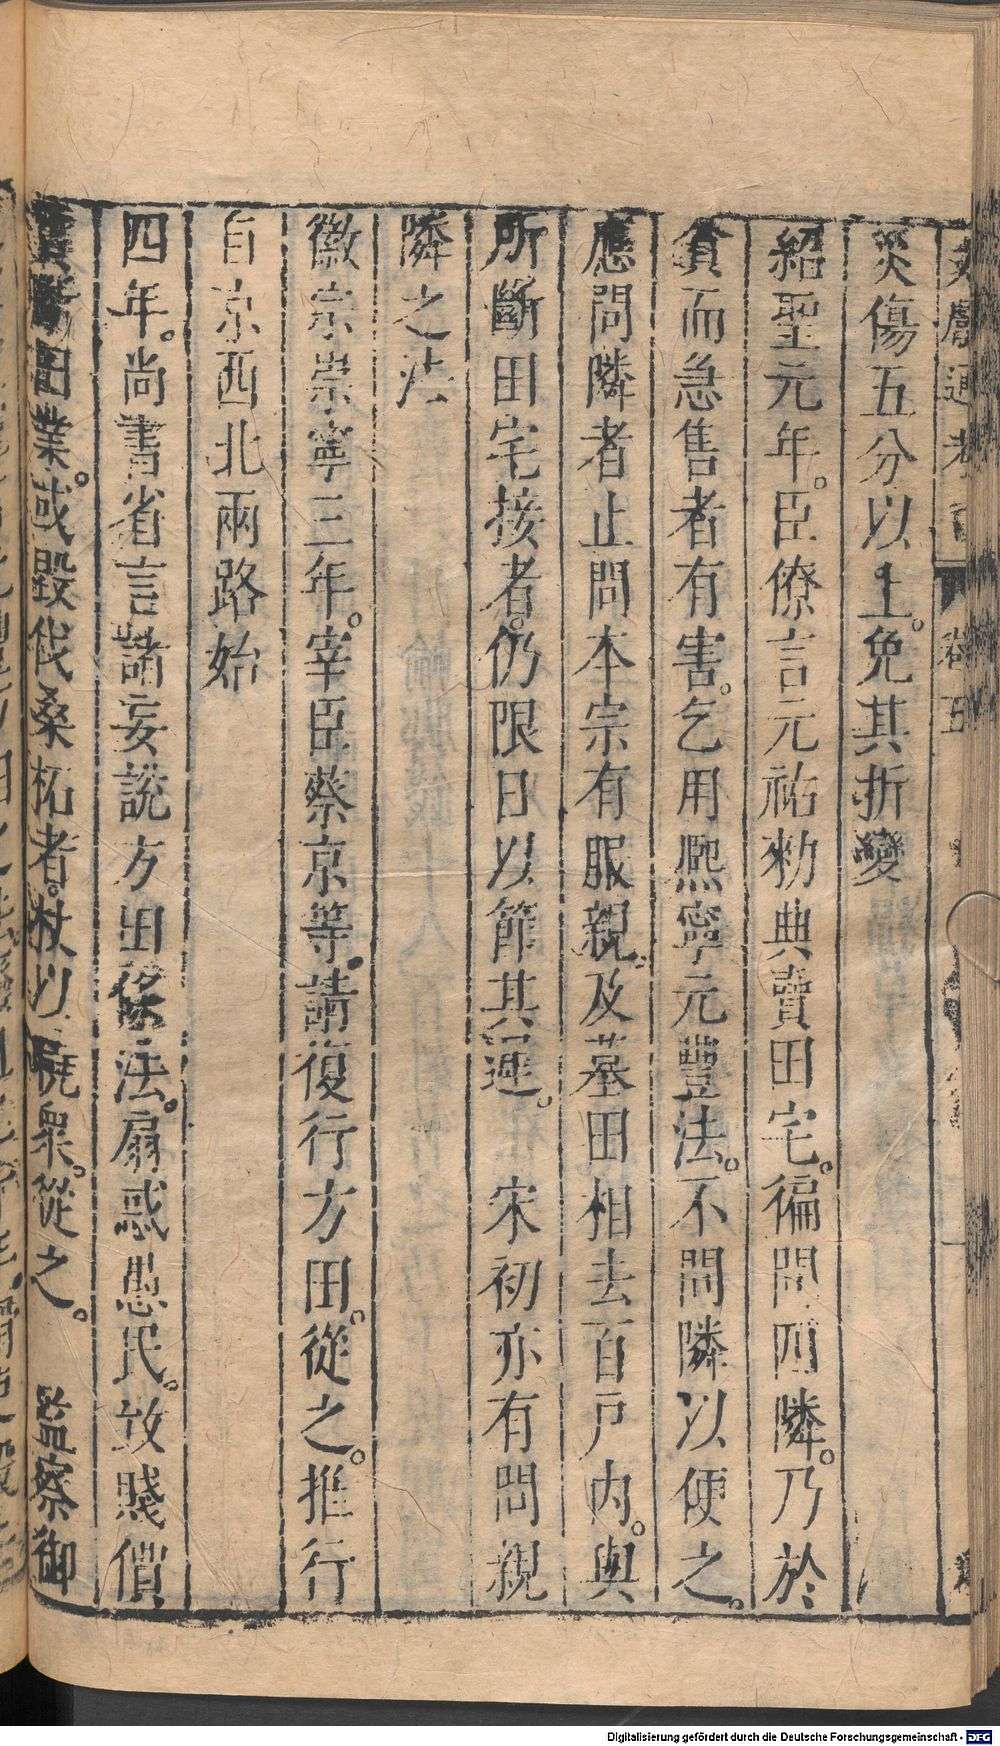 文獻通考 卷五
災傷五分以上。免其折變
紹聖元年。臣僚言元祐勑典賣田宅。徧問四隣。乃於
貧而急售者有害。乞用熈寧元豐法。不問隣以便之。
應問隣者止問本宗有服親。及墓田相去百戶內。與
所斷田宅接者。仍限日以節其遲。 宋初亦有問親
隣之法
徽宗崇寧三年。宰臣蔡京等。請復行方田。從之。推行
自京西北兩路始
四年。尚書省言諸妄說方田條法。扇惑愚民。致賤價
賣 田業。或毀伐桑柘者。杖以 衆。從之。 監察御
Digitalisierung gefördert durch die Deutsche Forschungsgemeinschaft - DFG